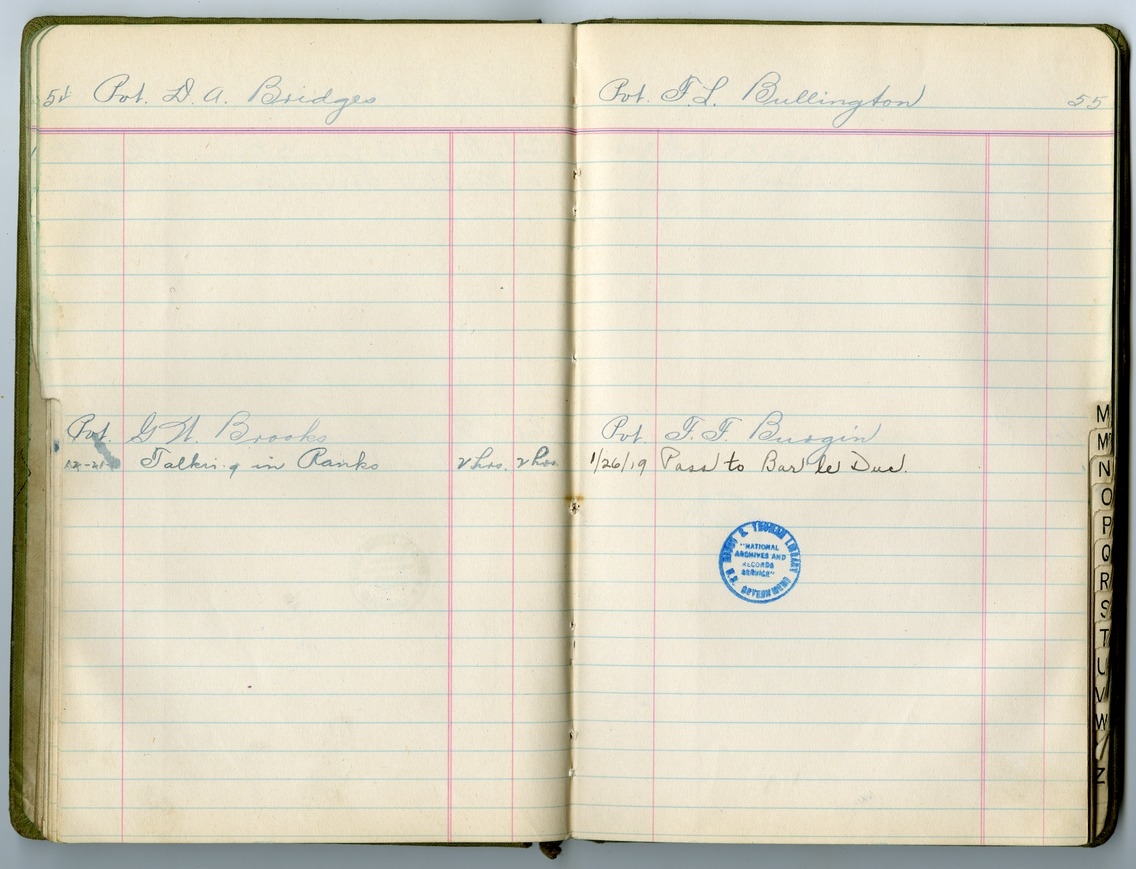 54 Pvt. D. A. Bridges
Pvt. G W. Brooks
Talking in Ranks 2 hrs. 2 hrs.
Pvt. F. L. Bullington 55
Pvt. F. F. Burgin
1/26/19 Pass to Bar le Duc.
HARRY S. TRUMAN LIBRARY
"NATIONAL
ARCHIVES AND
RECORDS
SERVICE"
U.S. GOVERNMENT
M
Mc
N
O
P
Q
R
S
T
U
V
W
Z